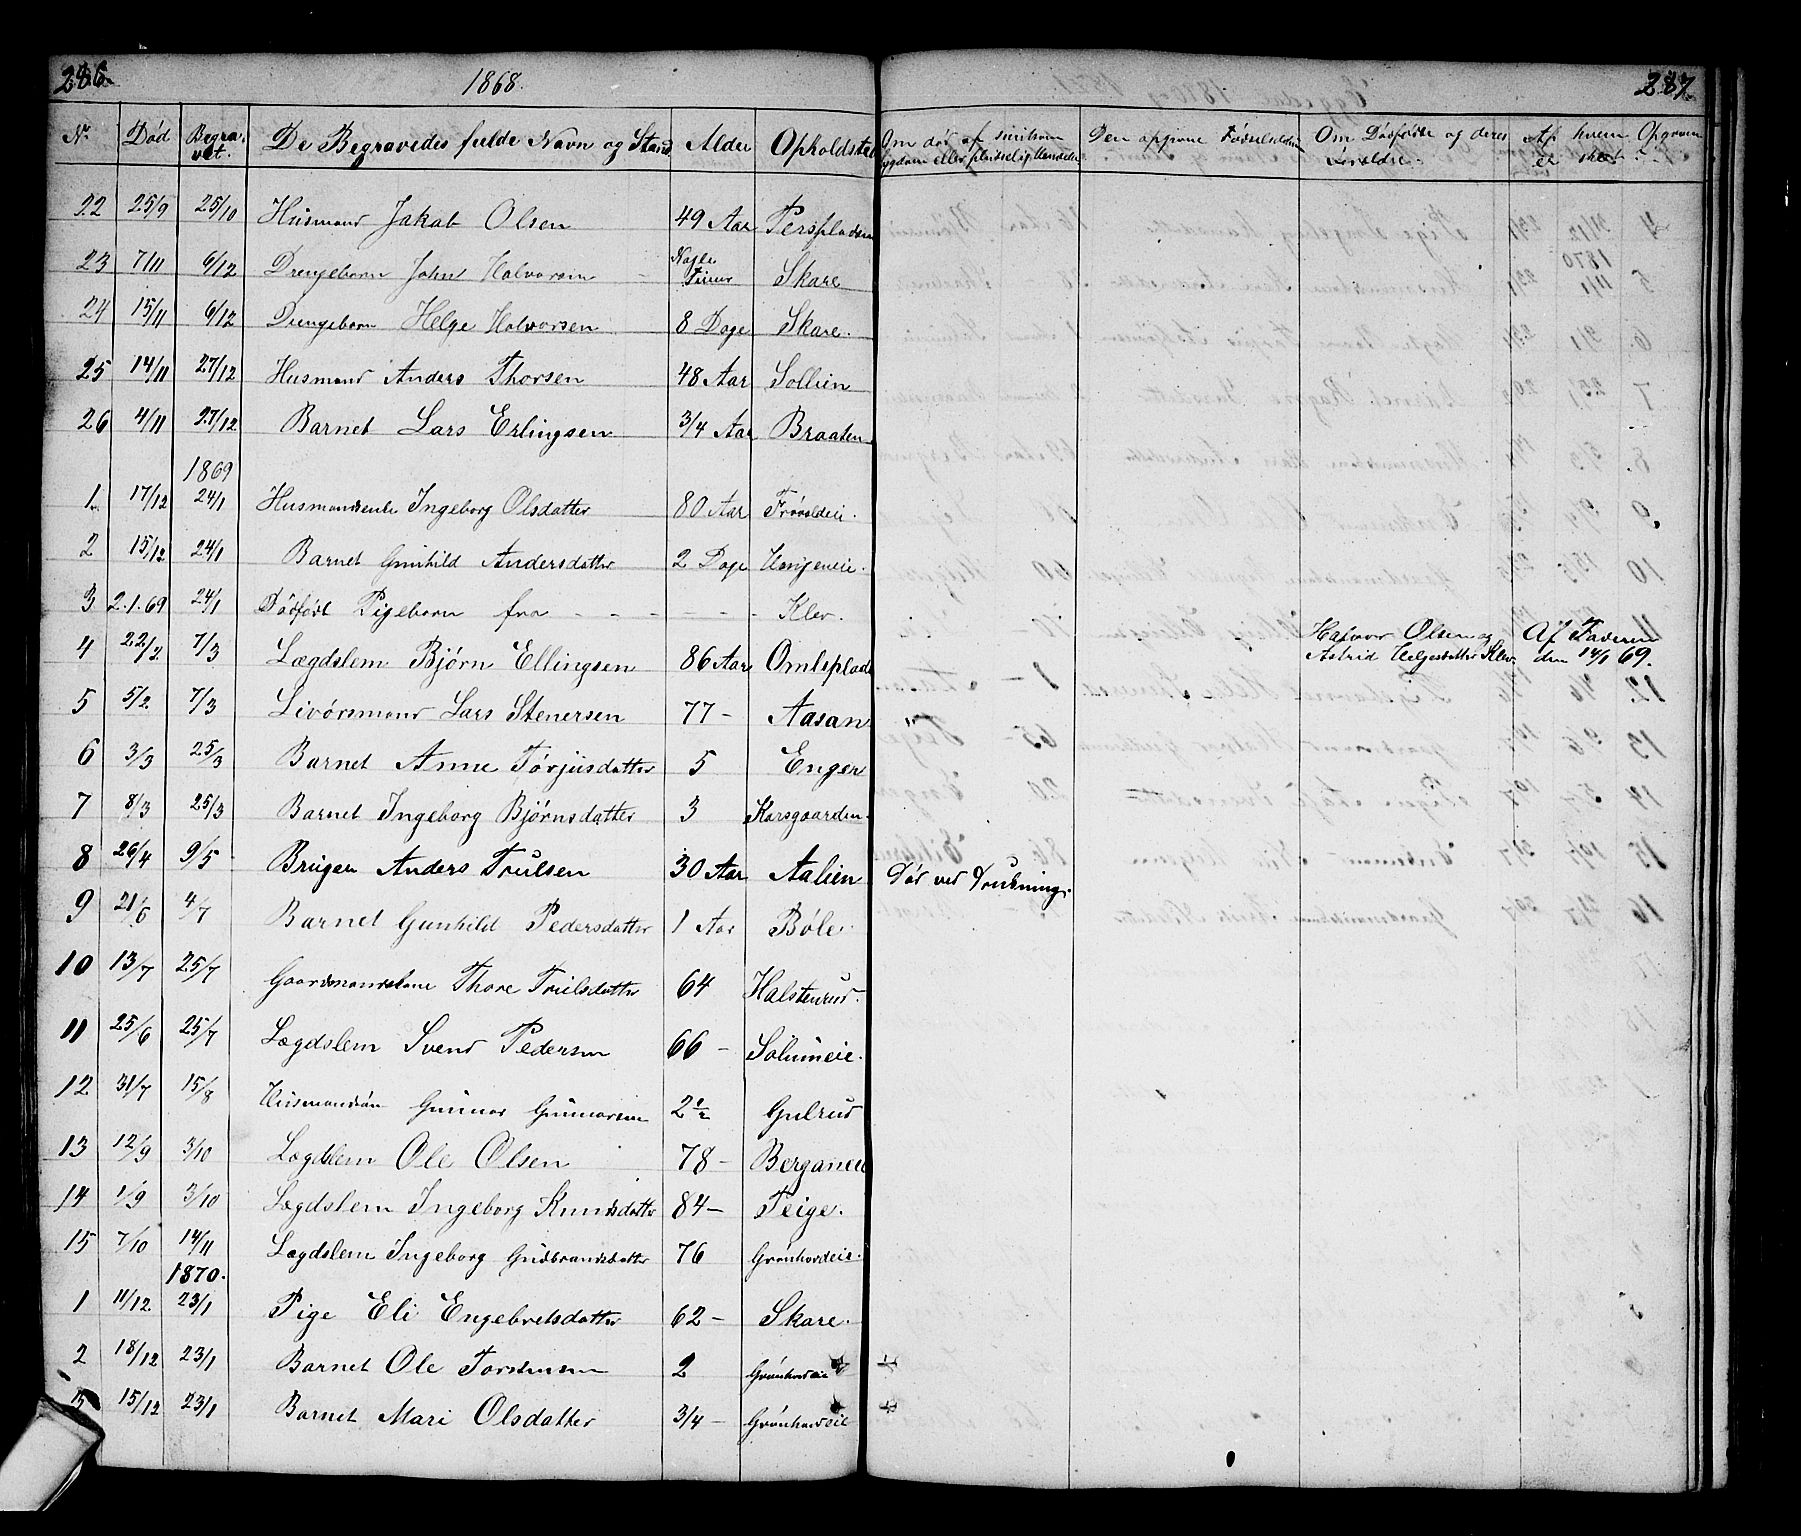 286. 1868. 287.
Nr. Død Begravet. De Begravedes fulde Navn og Stand Alder Opholdsted Om død af smitsom Sygdom eller pludselig Hændelse Den opgivne Fødselsdatum Om Dødfødte og deres Forældre. Af hvem Opgraven er skeet
22 25/9 25/10 Husmand Jakob Olsen 49 Aar Perspladsen
23 7/11 6/12 Drengebarn John Halvorsen Nogle Timer Skare
24 15/11 6/12 Drengebarn Helge Halvorsen 8 Dage Skare.
25 14/11 27/12 Husmand Anders Thorsen 48 Aar Sollien
26 4/11 27/12 Barnet Lars Erlingsen 3/4 Aar Braaten
1869
1. 17/12 24/1 Husmandsenke Ingeborg Olsdatter 80 Aar Frøvoldeie.
2 15/12 24/1 Barnet Gunhild Andersdatter 2 Dage
3 2.1.69 24/1 Dødfødt Pigebarn fra - - - Klev.
Halvor Olsen og Astrid Helgesdatter Klev. Af Faderen den 14/1 69.
4 22/2 7/3 Lægdslem Bjørn Ellingsen 86 Aar Omlsplads
5 5/2 7/3 Livørsmand Lars Stenersen 77 - Aasan
6 3/3 25/3 Barnet Anne Torjusdatter 5 Enger
7 8/3 25/3 Barnet Ingeborg Bjørnsdatter 3 Korsgaarden.
8 26/4 9/5 Bruger Anders Trulsen 30 Aar Aalien Død ved Drukning.
9 21/6 4/7 Barnet Gunhild Pedersdatter 1 Aar Bøle.
10 13/7 25/7 Gaardmandskone Thore Trulsdatter 64 Halstenrud.
11 25/6 25/7 Lægdslem Svend Pedersen 66 - Solumeie.
12 31/7 15/8 Husmandsøn Gunnar Gunnarsen 2 1/2 Gulrud
13 12/9 3/10 Lægdslem Ole Olsen 78 - Berganeie
14 1/9 3/10 Lægdslem Ingeborg Knudsdatter 84 - Teige.
15 7/10 14/11 Lægdslem Ingeborg Gudbrandsdatter 76 Grønhovdeie.
1870.
1 11/12 23/1 Pige Eli Engebretsdatter 62 - Skare.
2 18/12 23/1 Barnet Ole Torstensen 2 Grønhovdeie
3 15/12 23/1 Barnet Mari Olsdatter 3/4 - Grønhovdeie